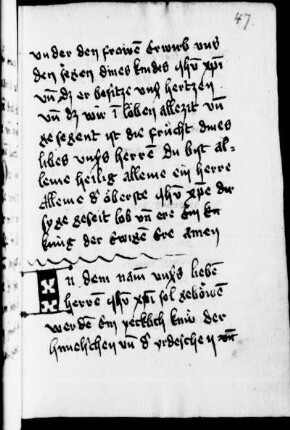 47.
vnder den frowen Erwirb vnß
den segen dines kindes ihū xpī
vn̄ dz er besitze vnß hertzen
vn̄ dz wir ī loben allezit vn̄
gesegent ist die frucht dines
libes vnsß herrē du bist al-
leine heilig alleine ein herre
Alleine ds̄ öberste ihū xpē dir
sÿge geseit lob vn̄ ere
kúnig der Ewigē Ere Amen
In dem namē vnsß lieben
herren ihū xpī sol
werdē Ein knúw der
himelschen vn̄ ds̄ yrdeschen vn̄